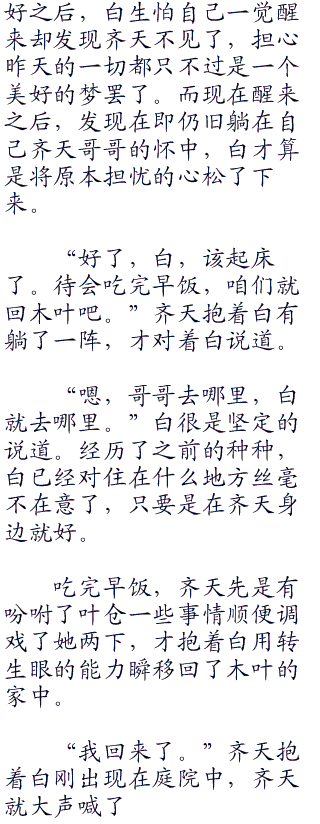 好之后，白生怕自己一觉醒
来却发现齐天不见了，担心
昨天的一切都只不过是一个
美好的梦罢了。而现在醒来
之后，发现在即仍旧躺在自
己齐天哥哥的怀中，白才算
是将原本担忧的心松了下
来。
“好了，白，该起床
了。待会吃完早饭，咱们就
回木叶吧。”齐天抱着白有
躺了一阵，才对着白说道。
“嗯，哥哥去哪里，白
就去哪里。”白很是坚定的
说道。经历了之前的种种，
白已经对住在什么地方丝毫
不在意了，只要是在齐天身
边就好。
吃完早饭，齐天先是有
吩咐了叶仓一些事情顺便调
戏了她两下，才抱着白用转
生眼的能力瞬移回了木叶的
家中。
“我回来了。”齐天抱
着白刚出现在庭院中，齐天
就大声喊了